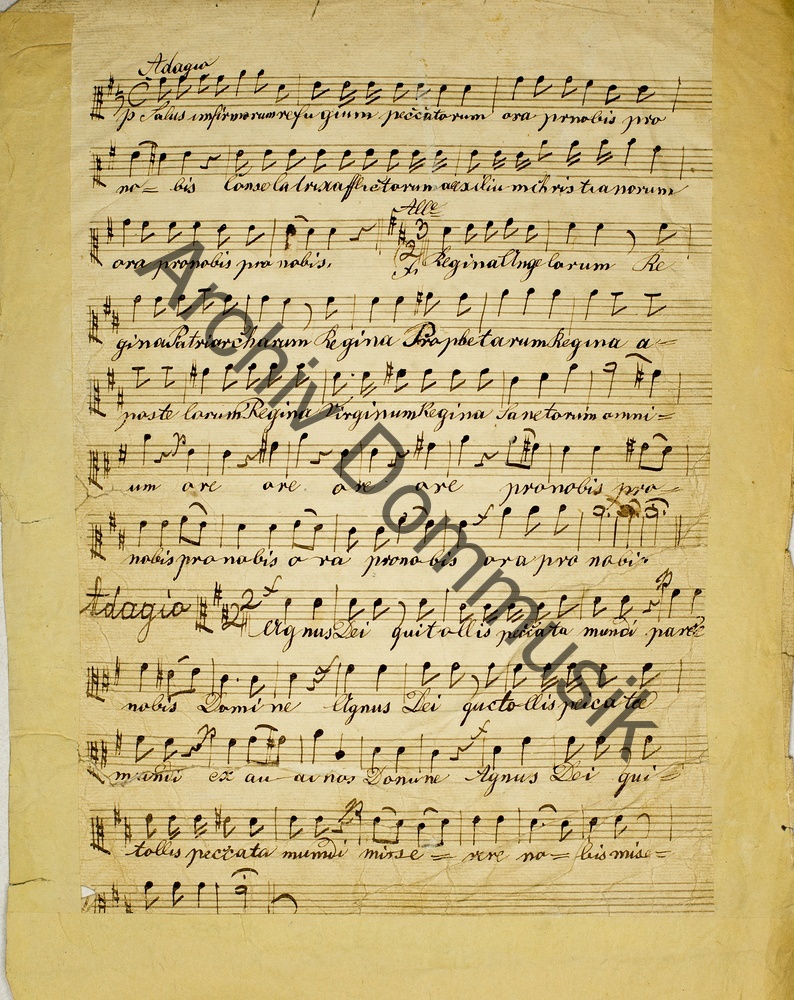 Adagio
p Salus infirmorum refugium peccatorum ora pro nobis pro
no = bis Consolatrix afflictorum auxilium Christianorum
Allo
ora pro nobis pro nobis. 3 2 f. Regina Angelorum Re
gina Patriarcharum Regina Prophetarum Regina a =
postolorum Regina Virginum Regina Sanctorum omni =
p
um ore ore ore ore pro nobis pro =
f
nobis pro nobis o ra pro no bis ora pro nobis
Adagio 2 2 f p
Agnus Dei qui tollis peccata mundi parce
f
nobis Domine Agnus Dei qui tollis peccata
p f
mundi ex au di nos Domine Agnus Dei qui =
p
tollis peccata mundi mise = rere no = bis mise =
Archiv Dommusik